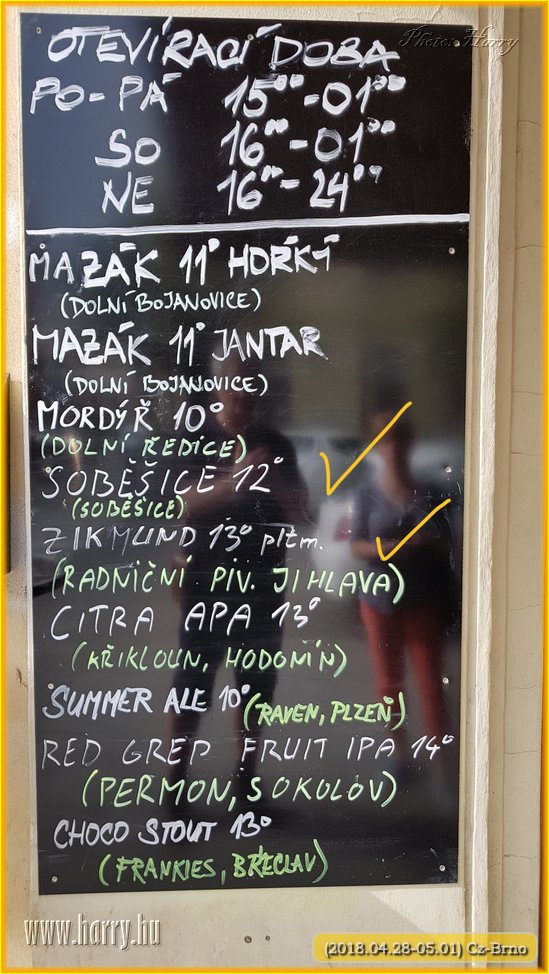 Photo: Harry
OTEVÍRACÍ DOBA
PO-PÁ 15⁰⁰-01⁰⁰
SO 16⁰⁰-01⁰⁰
NE 16⁰⁰-24⁰⁰
MAZÁK 11° HORKÝ
(DOLNÍ BOJANOVICE)
MAZÁK 11° JANTAR
(DOLNÍ BOJANOVICE)
MORDÝŘ 10°
(DOLNÍ ŘEDICE)
SOBĚŠICE 12°
(SOBĚŠICE)
ZIKMUND 13° pltm.
(RADNIČNÍ PIV. JIHLAVA)
CITRA APA 13°
(KŘIKLOUN, HODONÍN)
SUMMER ALE 10° (RAVEN, PLZEŇ)
RED GREP FRUIT IPA 14°
(PERMON, SOKOLOV)
CHOCO STOUT 13°
(FRANKIES, BŘECLAV)
www.harry.hu
(2018.04.28-05.01) Cz-Brno